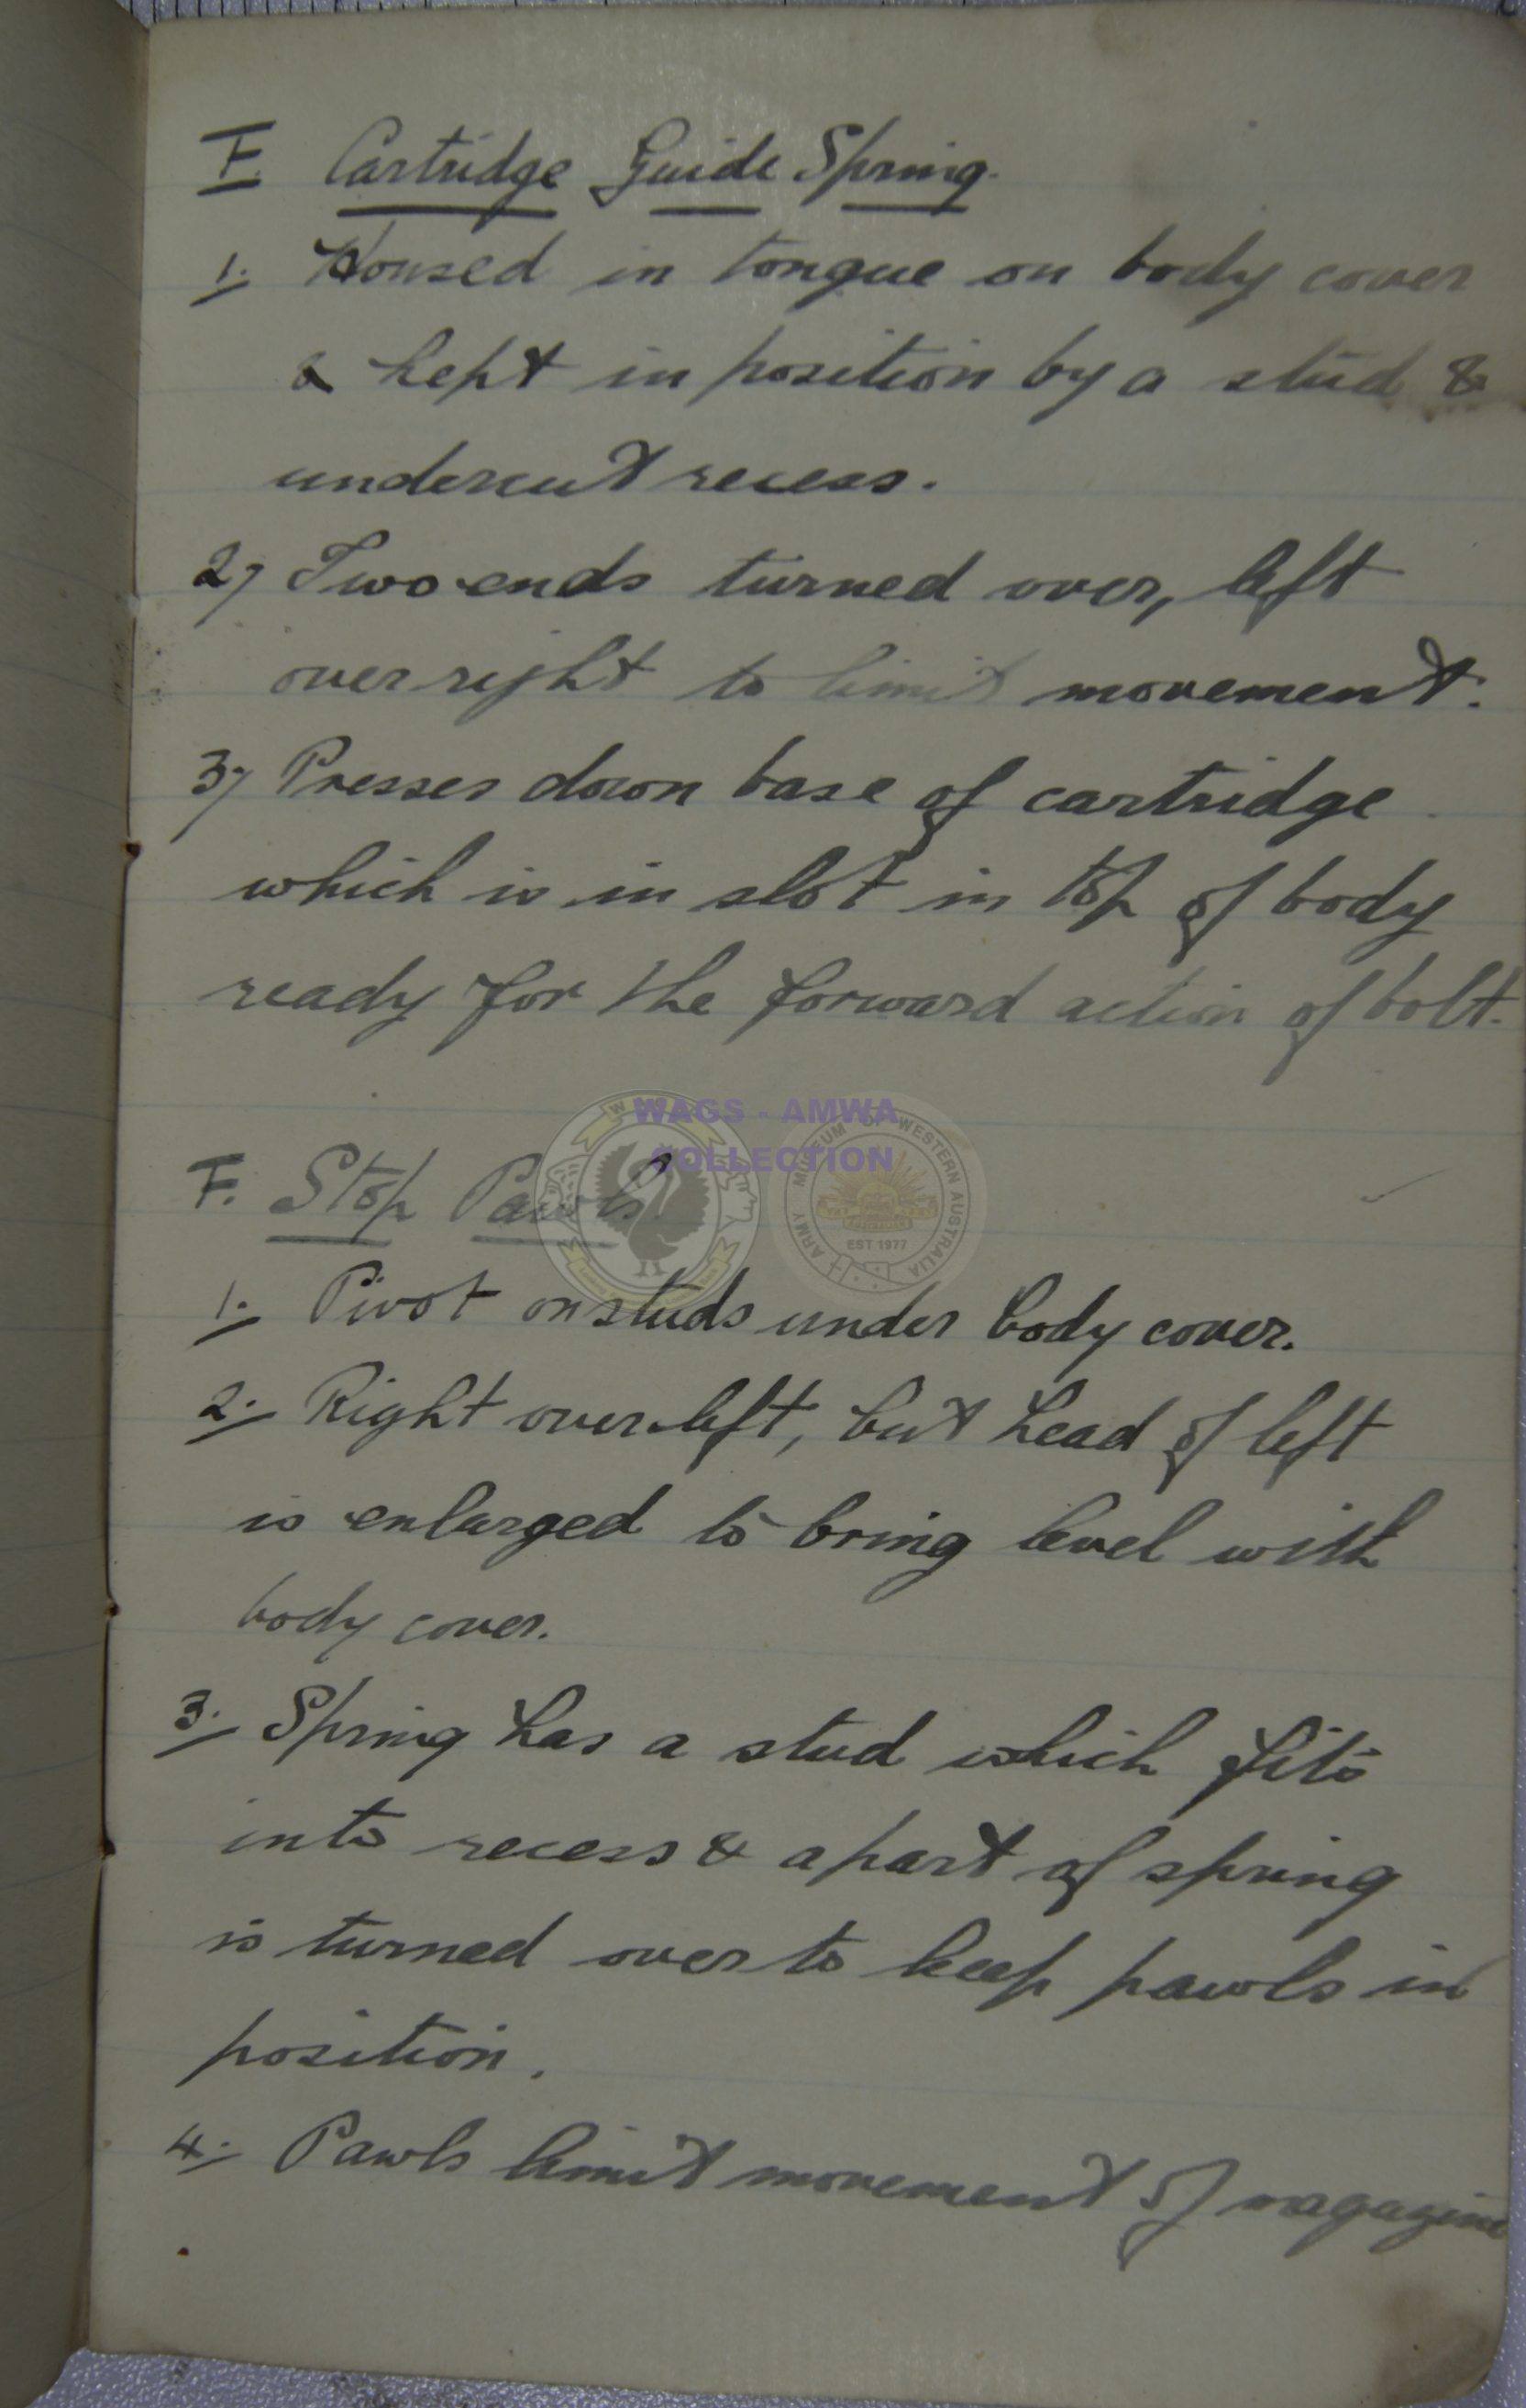 F. Cartridge Guide Spring.
1. Housed in tongue on body cover
& kept in position by a stud &
undercut recess.
2, Two ends turned over, left
over right to limit movement.
3, Presses down base of cartridge
which is in slot in top of body
ready for the forward action of bolt.
WAGS - AMWA
COLLECTION
ARMY MUSEUM OF WESTERN AUSTRALIA
EST 1977
F. Stop Pawls.
1. Pivot on studs under body cover.
2. Right over left, but head of left
is enlarged to bring level with
body cover.
3. Spring has a stud which fits
into recess & a part of spring
is turned over to keep pawls in
position.
4. Pawls limit movement of magazine